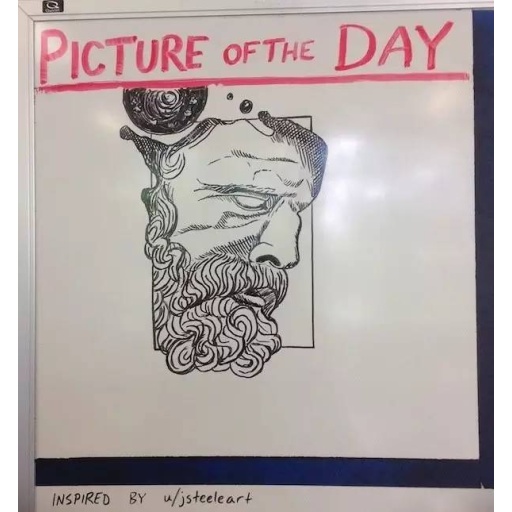 PICTURE OF THE DAY
INSPIRED BY u/jsteeleart